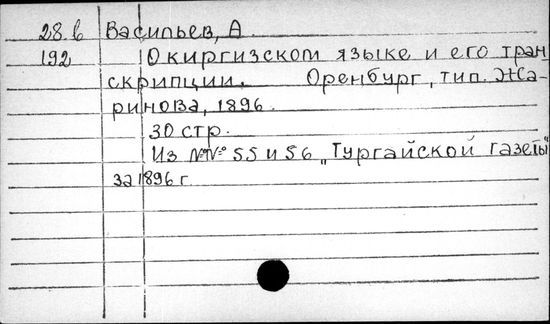 28.6 Васильев, А.
192 О киргизском языке и его тран-
скрипции. Оренбург, тип. Жа-
ринова, 1896.
30 стр.
Из №№ 55 и 56 „Тургайской газеты"
за 1896 г.